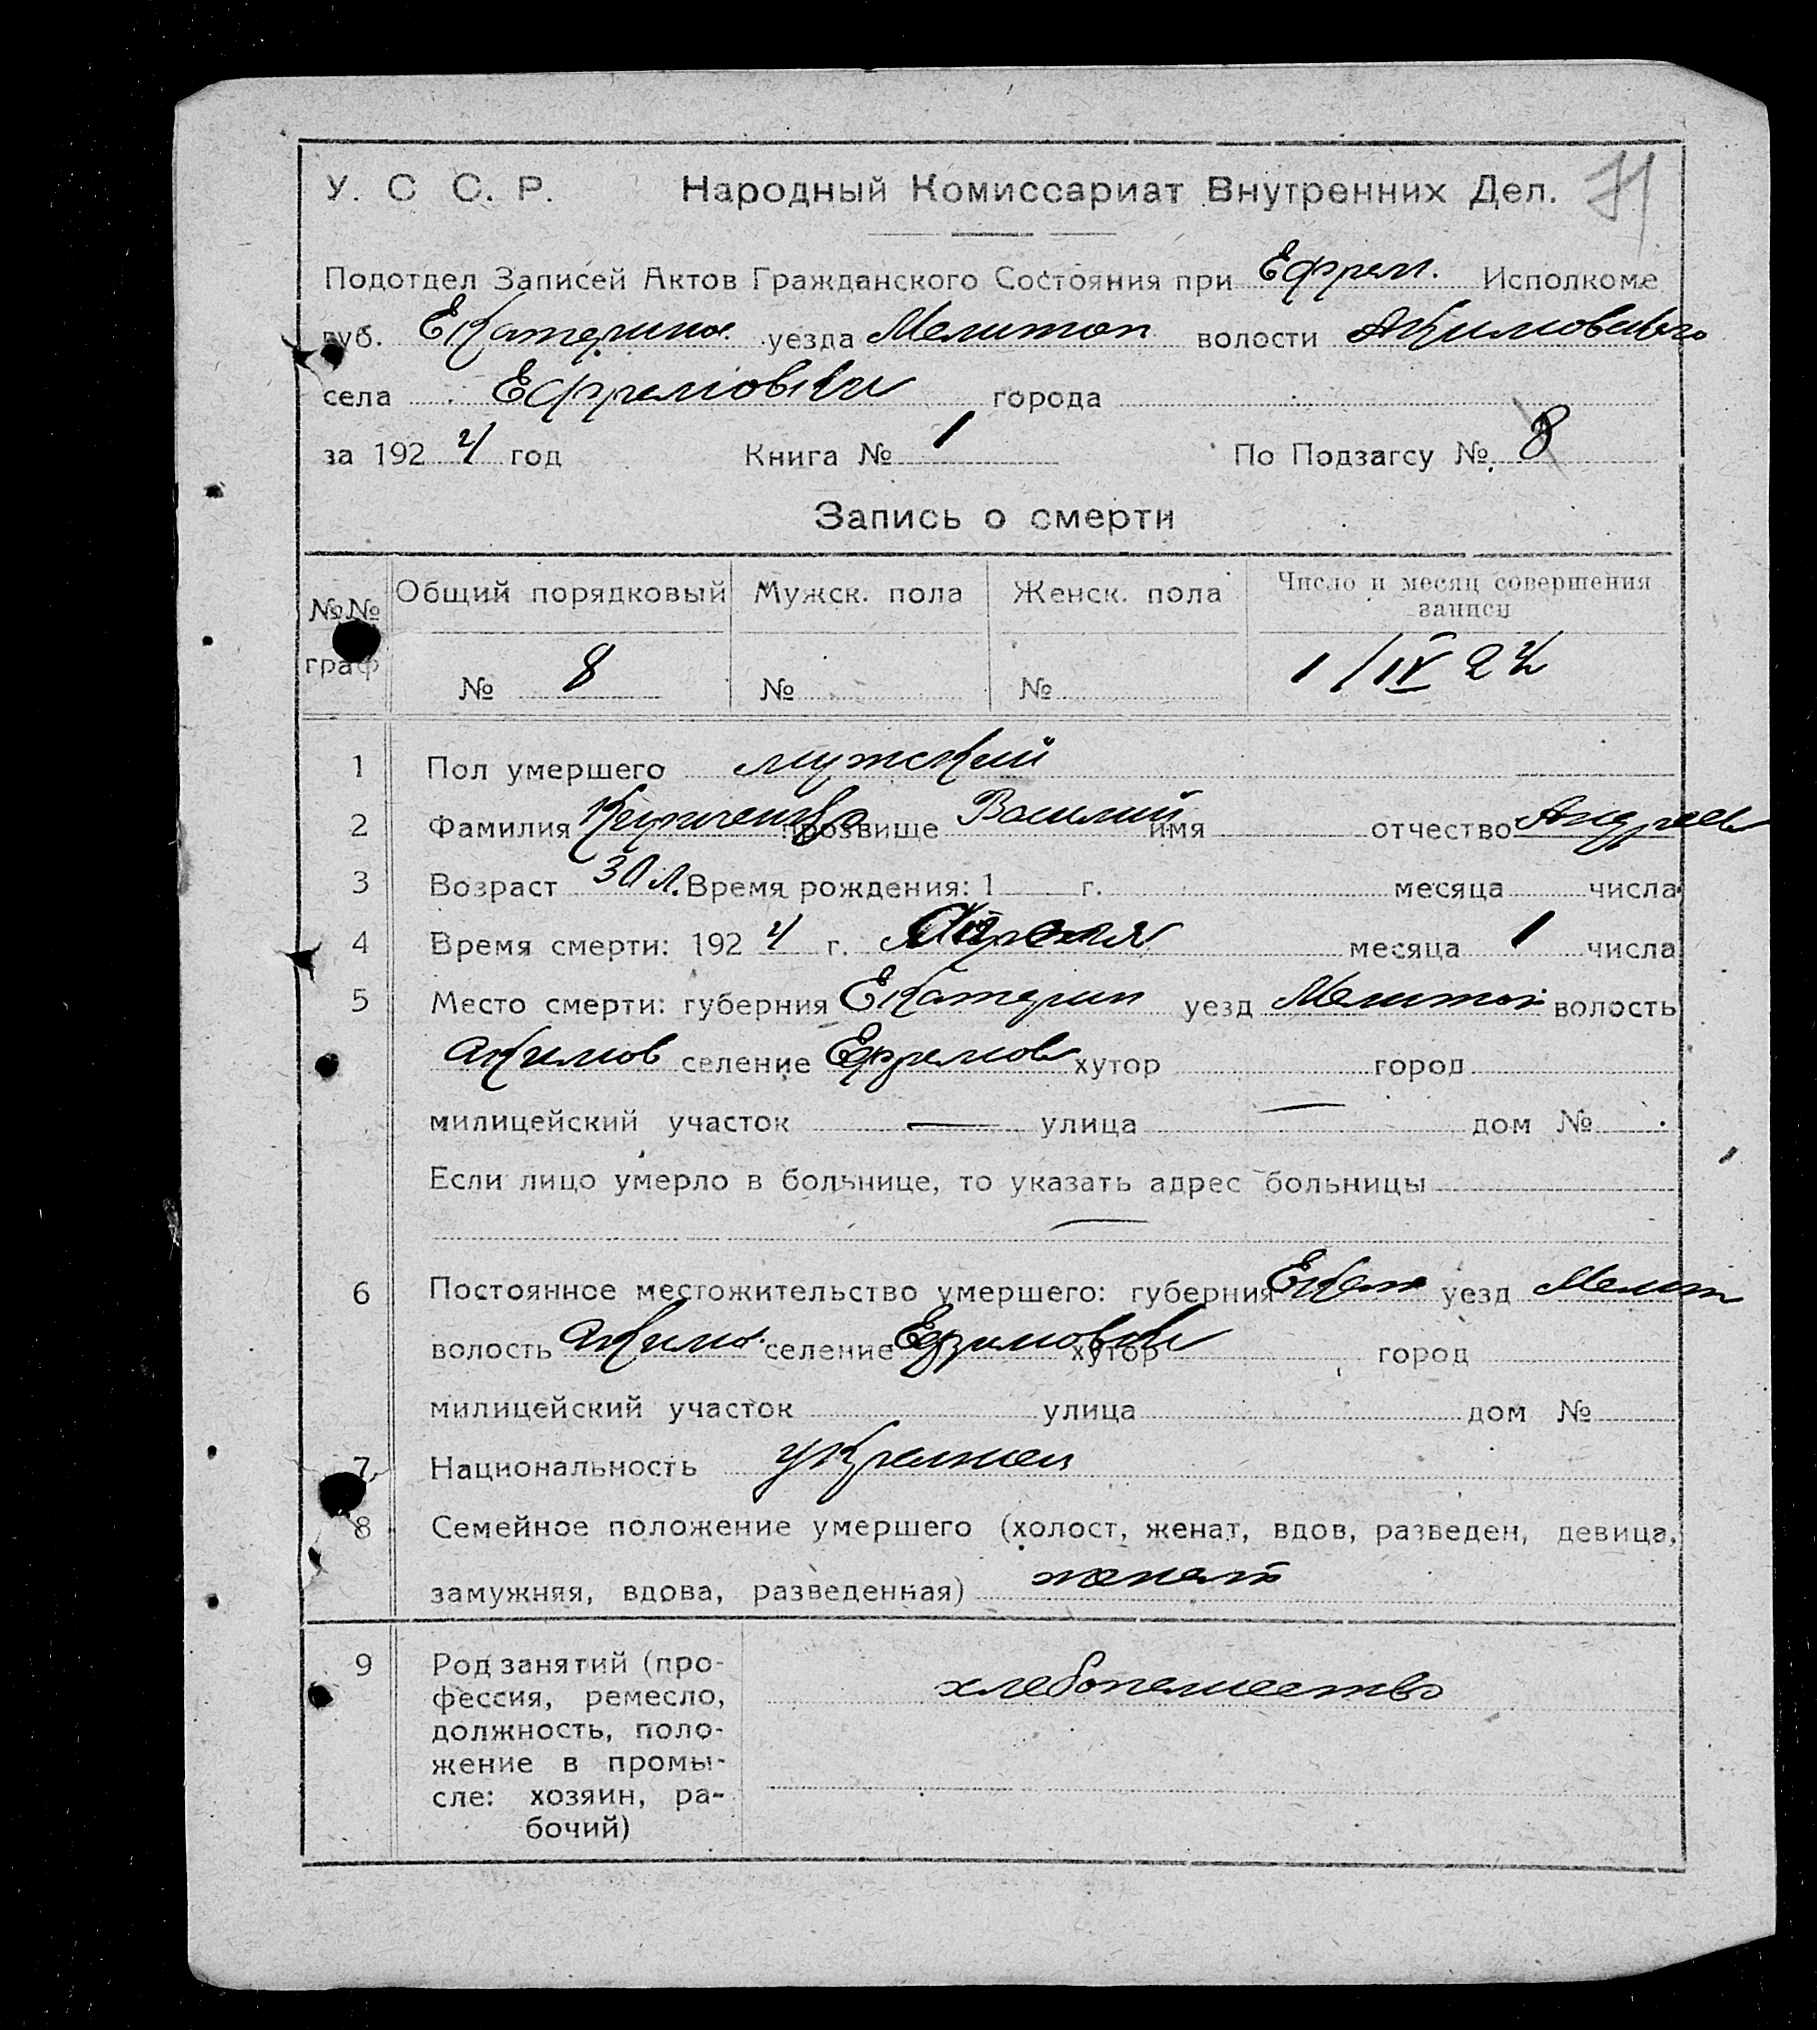 У. С С. Р. Народный Комиссариат Внутренних Дел. 71
Подотдел Записей Актов Гражданского Состояния при Ефрем. Исполкоме
губ. Екатерино. уезда Мелитоп волости Акимовского
села Ефремовки города
за 1924 год Книга № 1 По Подзагсу № 8
Запись о смерти
№№ граф Общий порядковый Мужск. пола Женск. пола Число и месяц совершения записи
№ 8 № № 1/IV 24
1 Пол умершего мужский
2 Фамилия прозвище Василий имя отчество Андреев
3 Возраст 30 л. Время рождения: 1 г. месяца числа
4 Время смерти: 1924 г. месяца 1 числа
5 Место смерти: губерния Екатерин уезд Мелитоп волость
Акимов селение Ефремов хутор город
милицейский участок — улица — дом №
Если лицо умерло в больнице, то указать адрес больницы
—
6 Постоянное местожительство умершего: губерния Екат уезд Мелит
волость Акимо. селение Ефремовки хутор город
милицейский участок улица дом №
7 Национальность украинец
8 Семейное положение умершего (холост, женат, вдов, разведен, девица,
замужняя, вдова, разведенная) женат
9 Род занятий (про-
фессия, ремесло, хлебопашество
должность, поло-
жение в промы-
сле: хозяин, ра-
бочий)